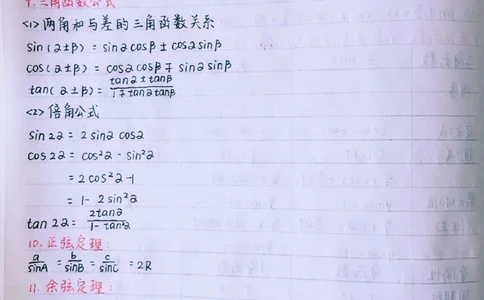 9.三角函数公式
<1>两角和与差的三角函数关系
sin(2±β) = sin2cosβ ± cos2sinβ
cos(2±β) = cos2cosβ ∓ sin2sinβ
tan(2±β) = tan2±tanβ / 1∓tan2tanβ
<2>倍角公式
sin22 = 2sin2 cos2
cos22 = cos²2 - sin²2
= 2cos²2-1
= 1- 2sin²2
tan22 = 2tan2 / 1-tan²2
10.正弦定理:
a/sinA = b/sinB = c/sinC = 2R
11.余弦定理: